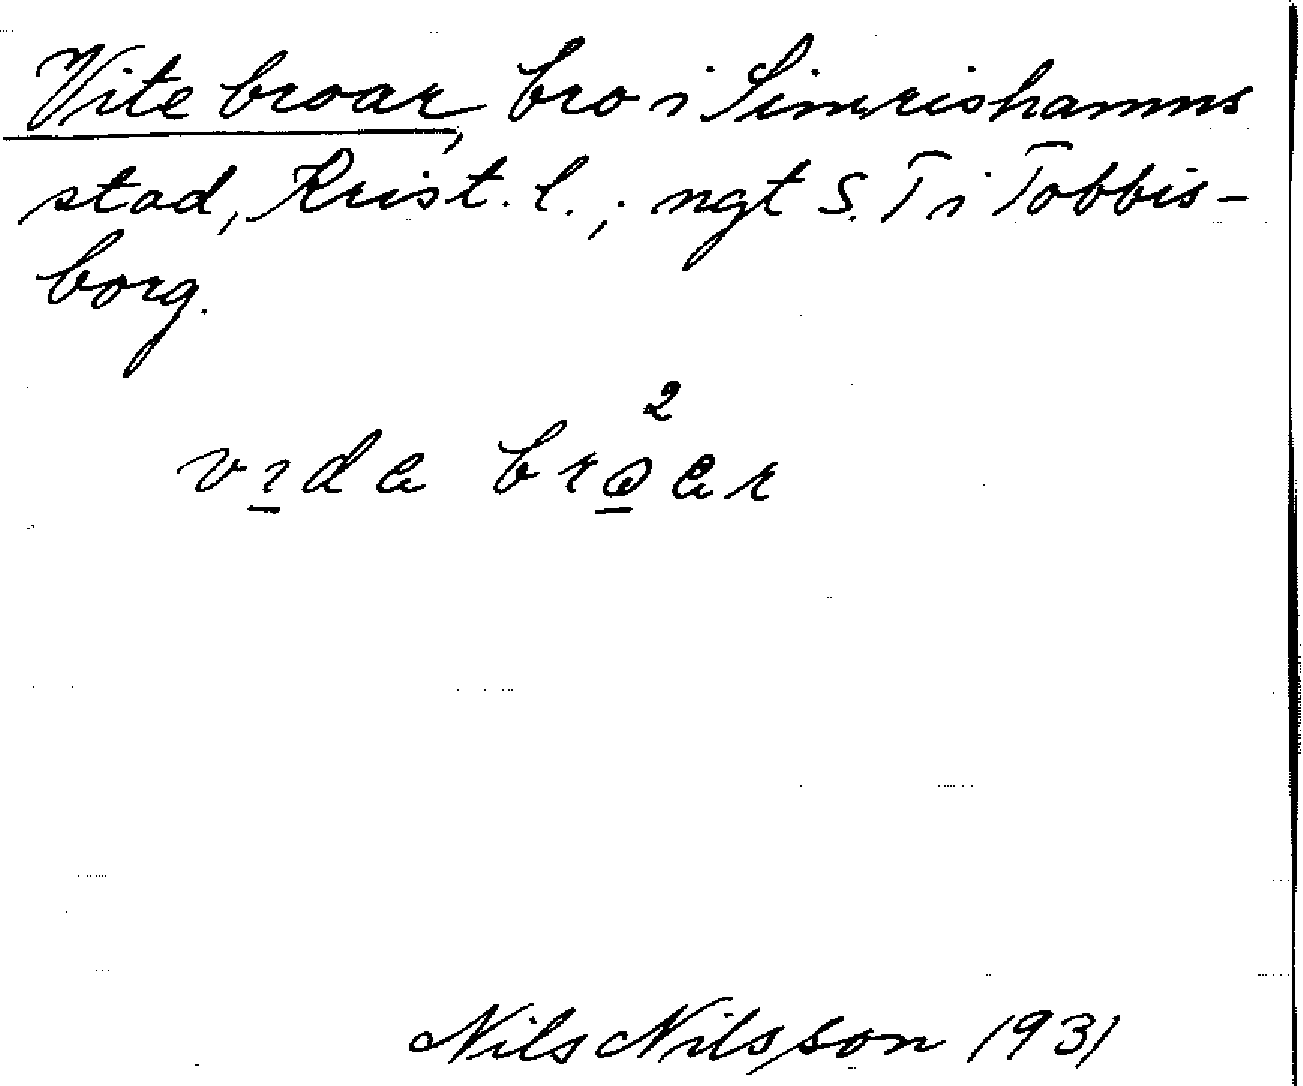 Vite broar, bro i Simrishamns
stad, Krist. l.; ngt S. T i Tobbis-
borg.
2
vıda broar
Nils Nilsson 1931